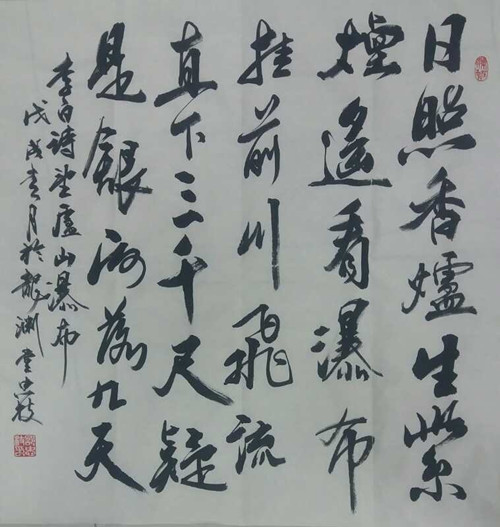 日照香爐生紫
煙遙看瀑布
挂前川飛流
直下三千尺疑
是銀河落九天
李白詩望廬山瀑布
戊戌春月於龍淵堂